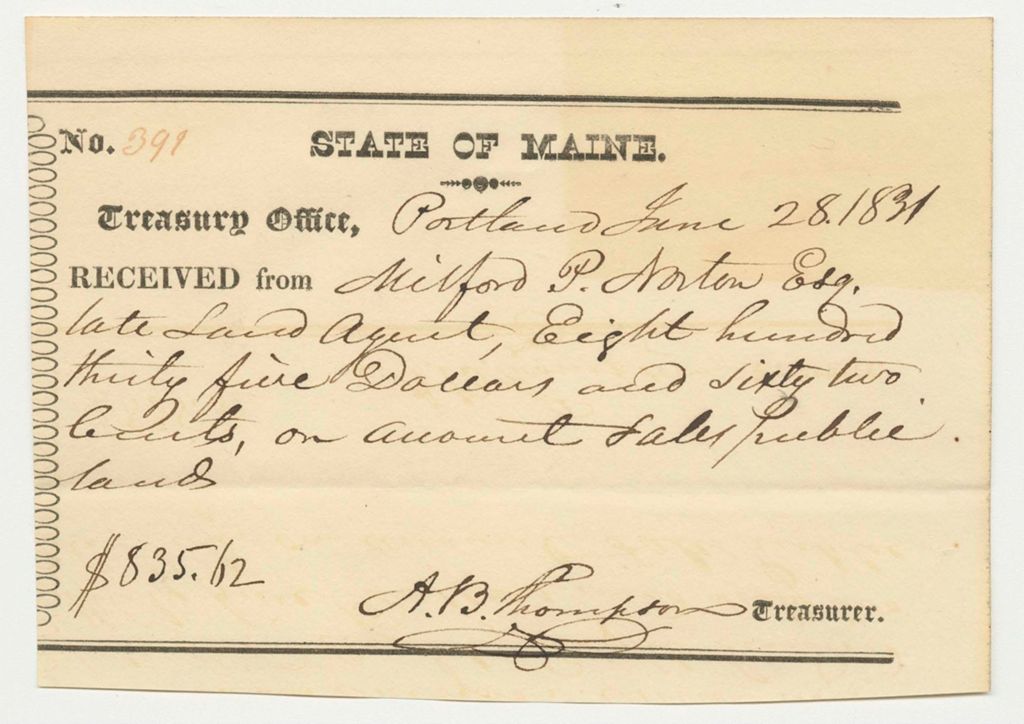 No. 391
STATE OF MAINE.
Treasury Office, Portland June 28. 1831
RECEIVED from Milford P. Norton Esq.
late Land Agent, Eight hundred
thirty five Dollars and sixty two
Cents, on account sales public
lands
$835.62
A. B. Thompson Treasurer.